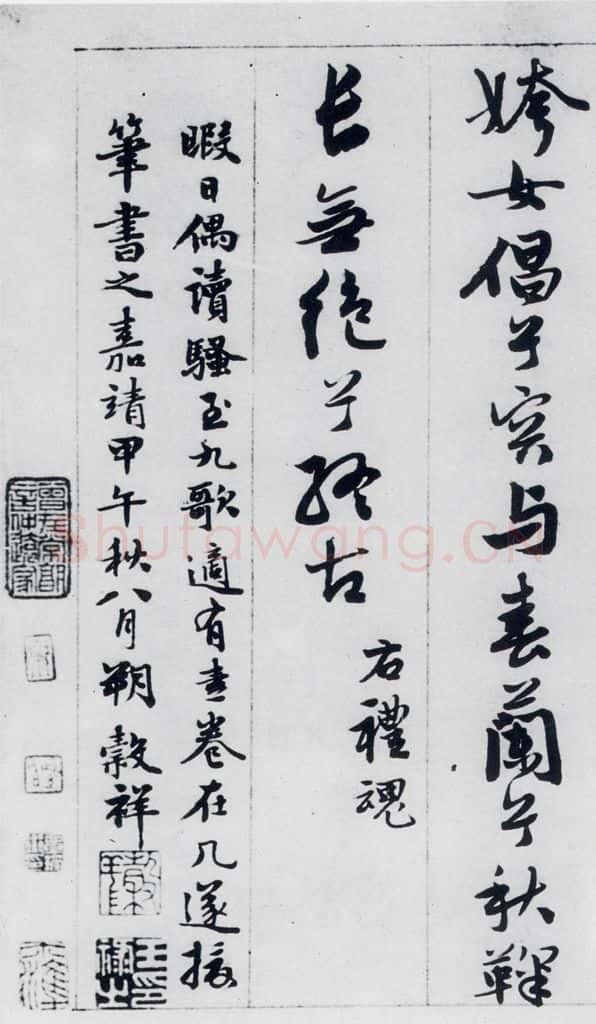 姱女倡兮容与春蘭兮秋鞠
長無絕兮終古
右禮魂
暇日偶讀騷至九歌適有素卷在几遂援
筆書之嘉靖甲午秋八月朔穀祥
Shufawang.CN